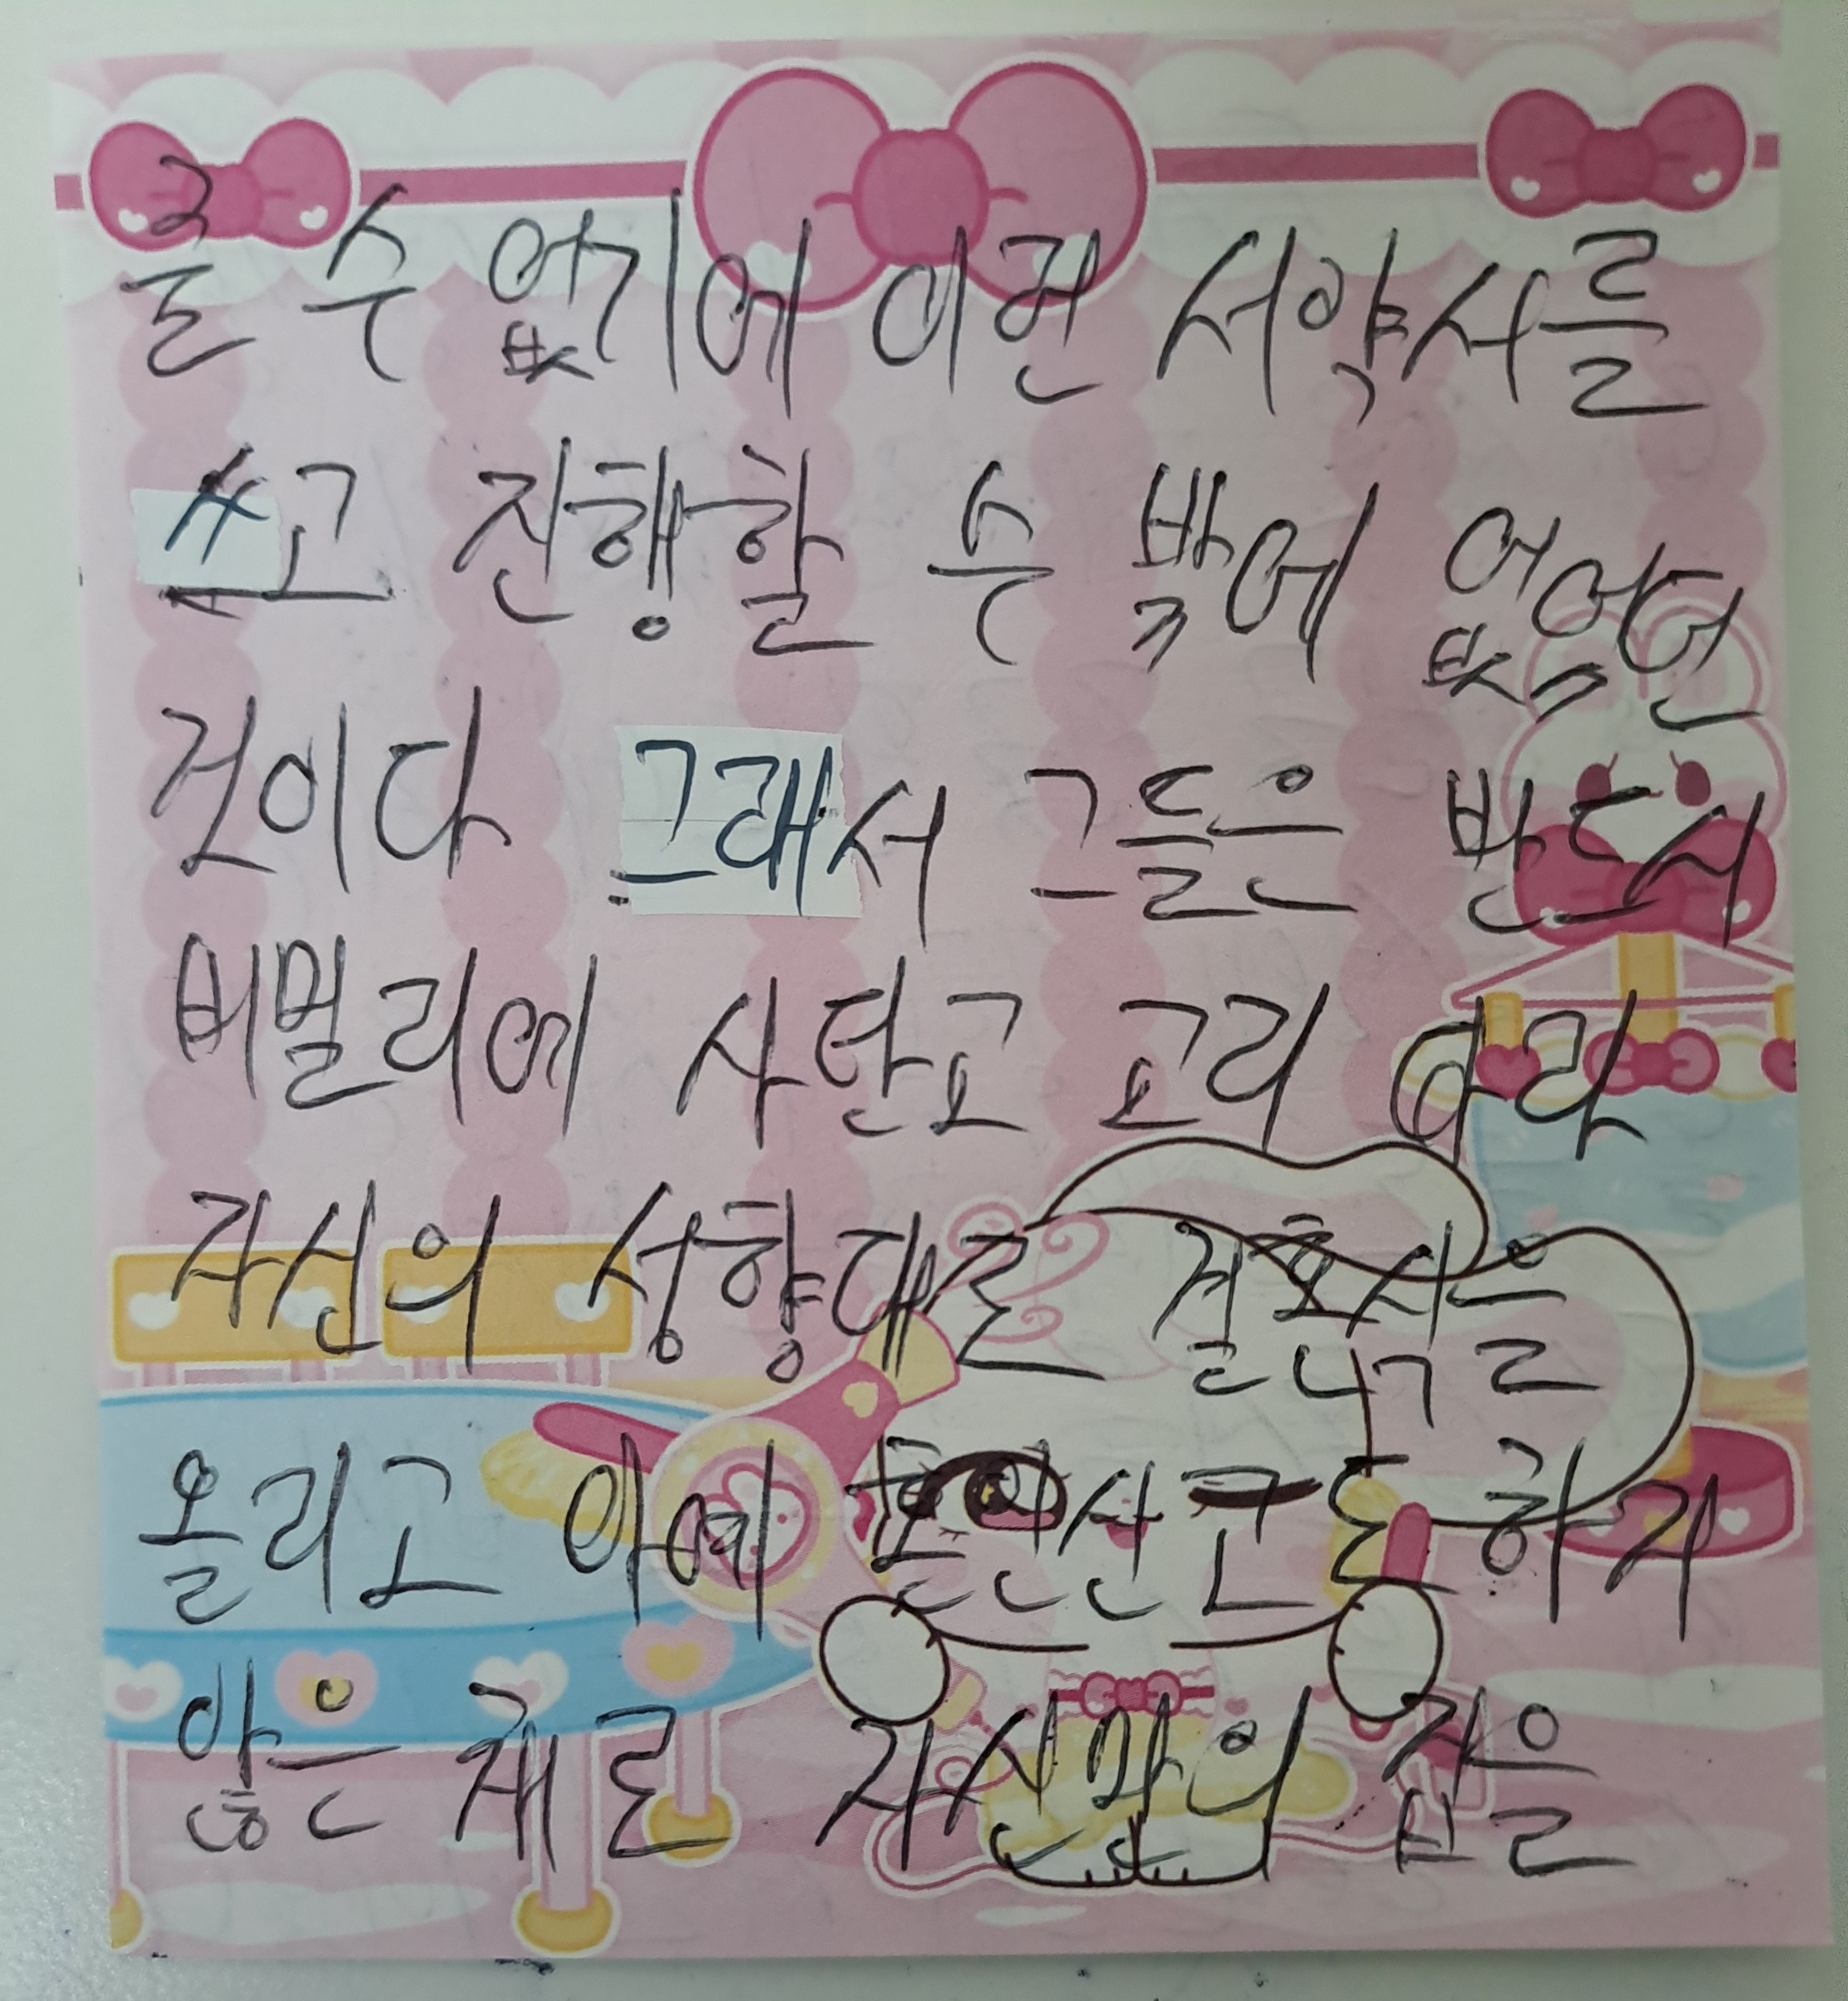 줄 수 없기에 이런 서약서를
쓰고 진행할 수 밖에 없었던
것이다 그래서 그들은 반드시
비밀리에 사탄고 고리 따라
자신의 성향대로 결혼식을
올리고 아예 혼인신고도 하지
않은 채로 자신만의 집을